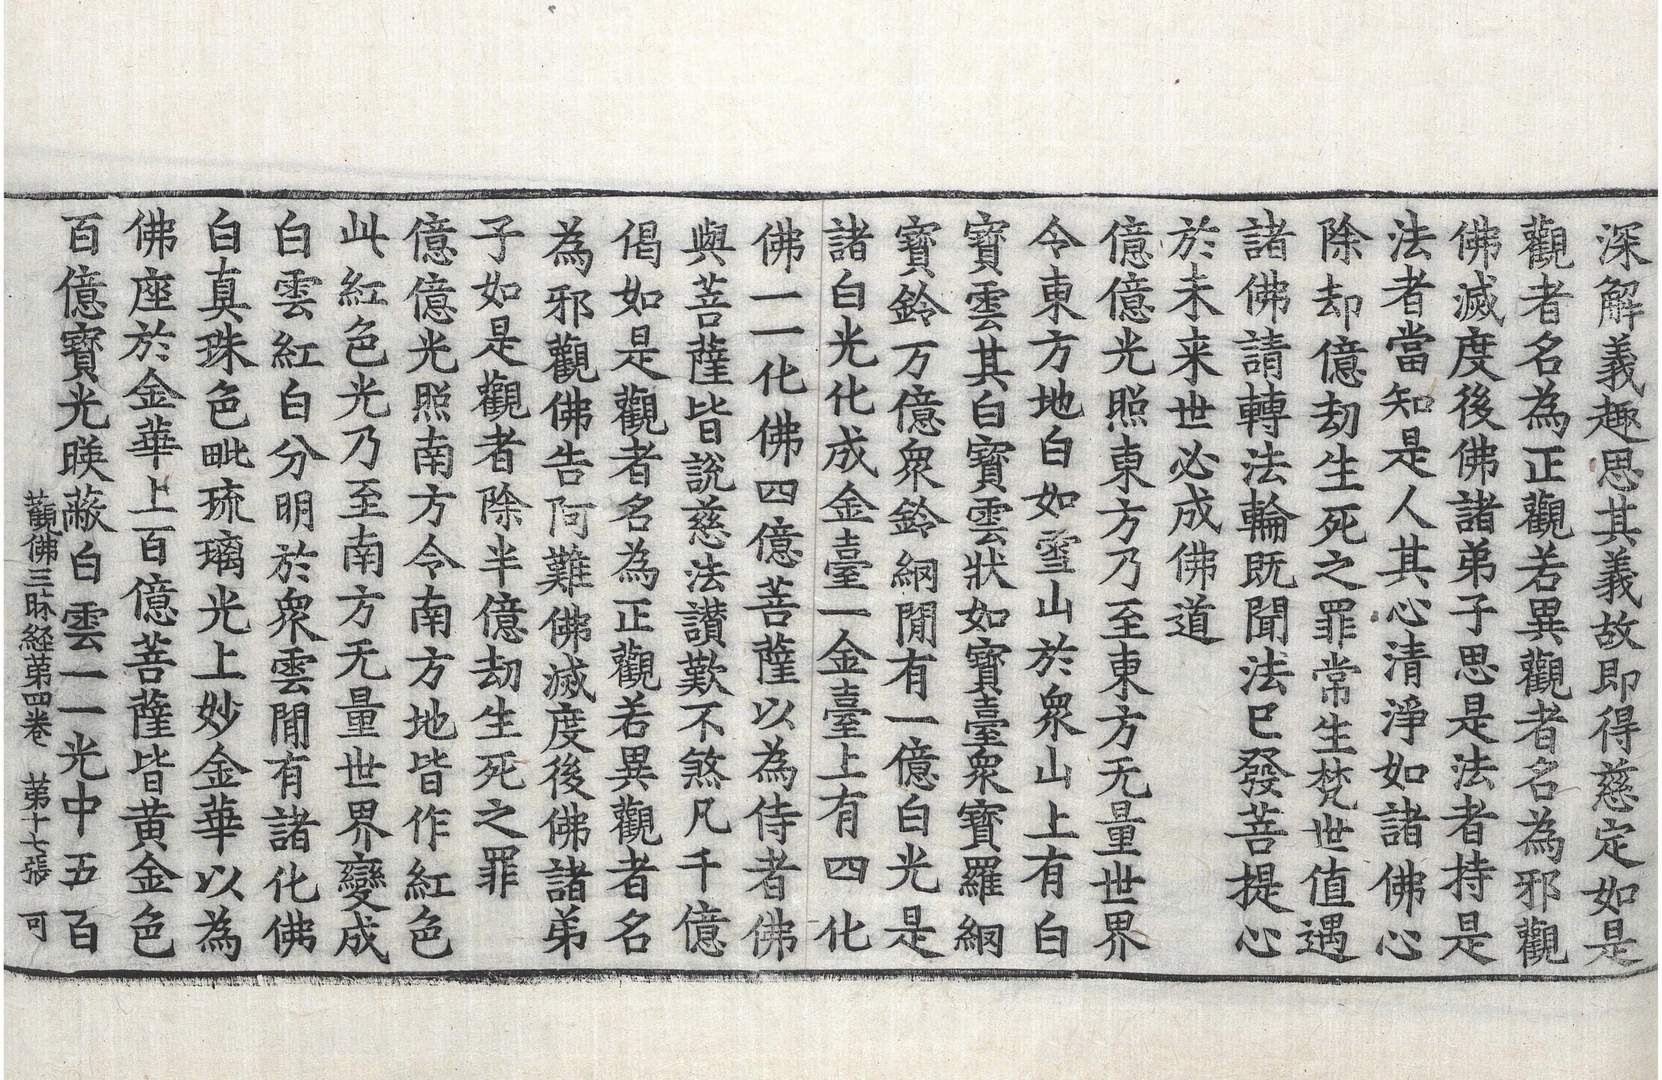 深解義趣思其義故即得慈定如是
觀者名為正觀若異觀者名為邪觀
佛滅度後佛諸弟子思是法者持是
法者當知是人其心清淨如諸佛心
除却億劫生死之罪常生梵世值遇
諸佛請轉法輪既聞法已發菩提心
於未来世必成佛道
億億光照東方乃至東方无量世界
令東方地白如雪山於衆山上有白
寶雲其白寶雲狀如寶臺衆寶羅網
寶鈴万億衆鈴網閒有一億白光是
諸白光化成金臺一金臺上有四化
佛一一化佛四億菩薩以為侍者佛
與菩薩皆說慈法讃歎不煞凡千億
偈如是觀者名為正觀若異觀者名
為邪觀佛告阿難佛滅度後佛諸弟
子如是觀者除半億劫生死之罪
億億光照南方令南方地皆作紅色
此紅色光乃至南方无量世界變成
白雲紅白分明於衆雲閒有諸化佛
白真珠色毗琉璃光上妙金華以為
佛座於金華上百億菩薩皆黄金色
百億寶光暎蔽白雲一一光中五百
觀佛三昧経第四卷　第十七張　可